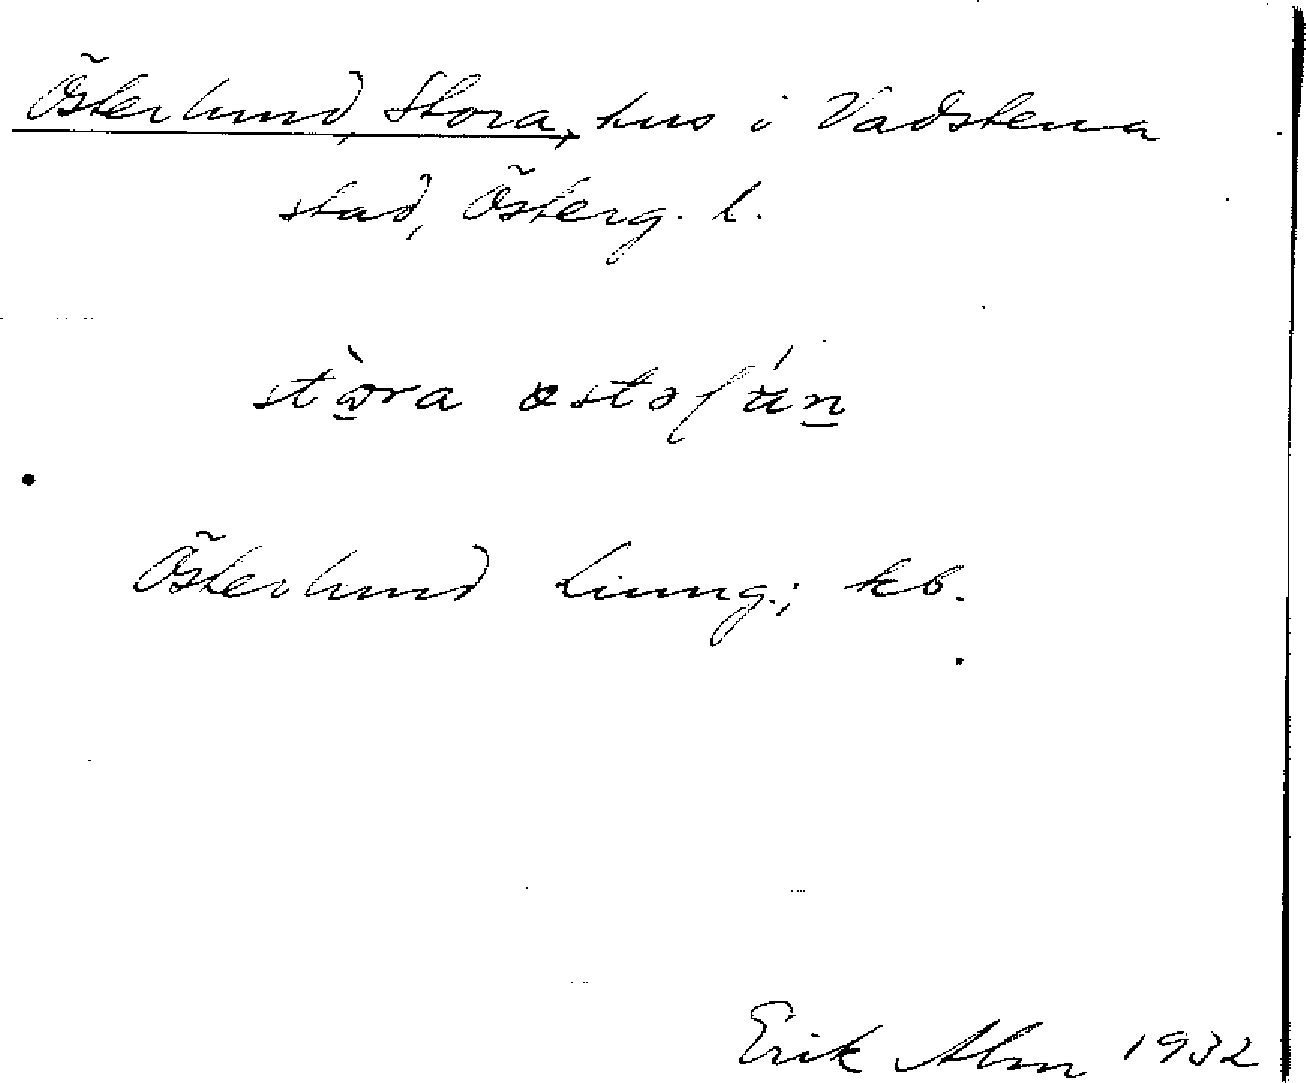 Österlund, Stora, hus i Vadstena
stad, Österg. l.
stora
Österlund Liung.; kb.
Erik Alm 1932